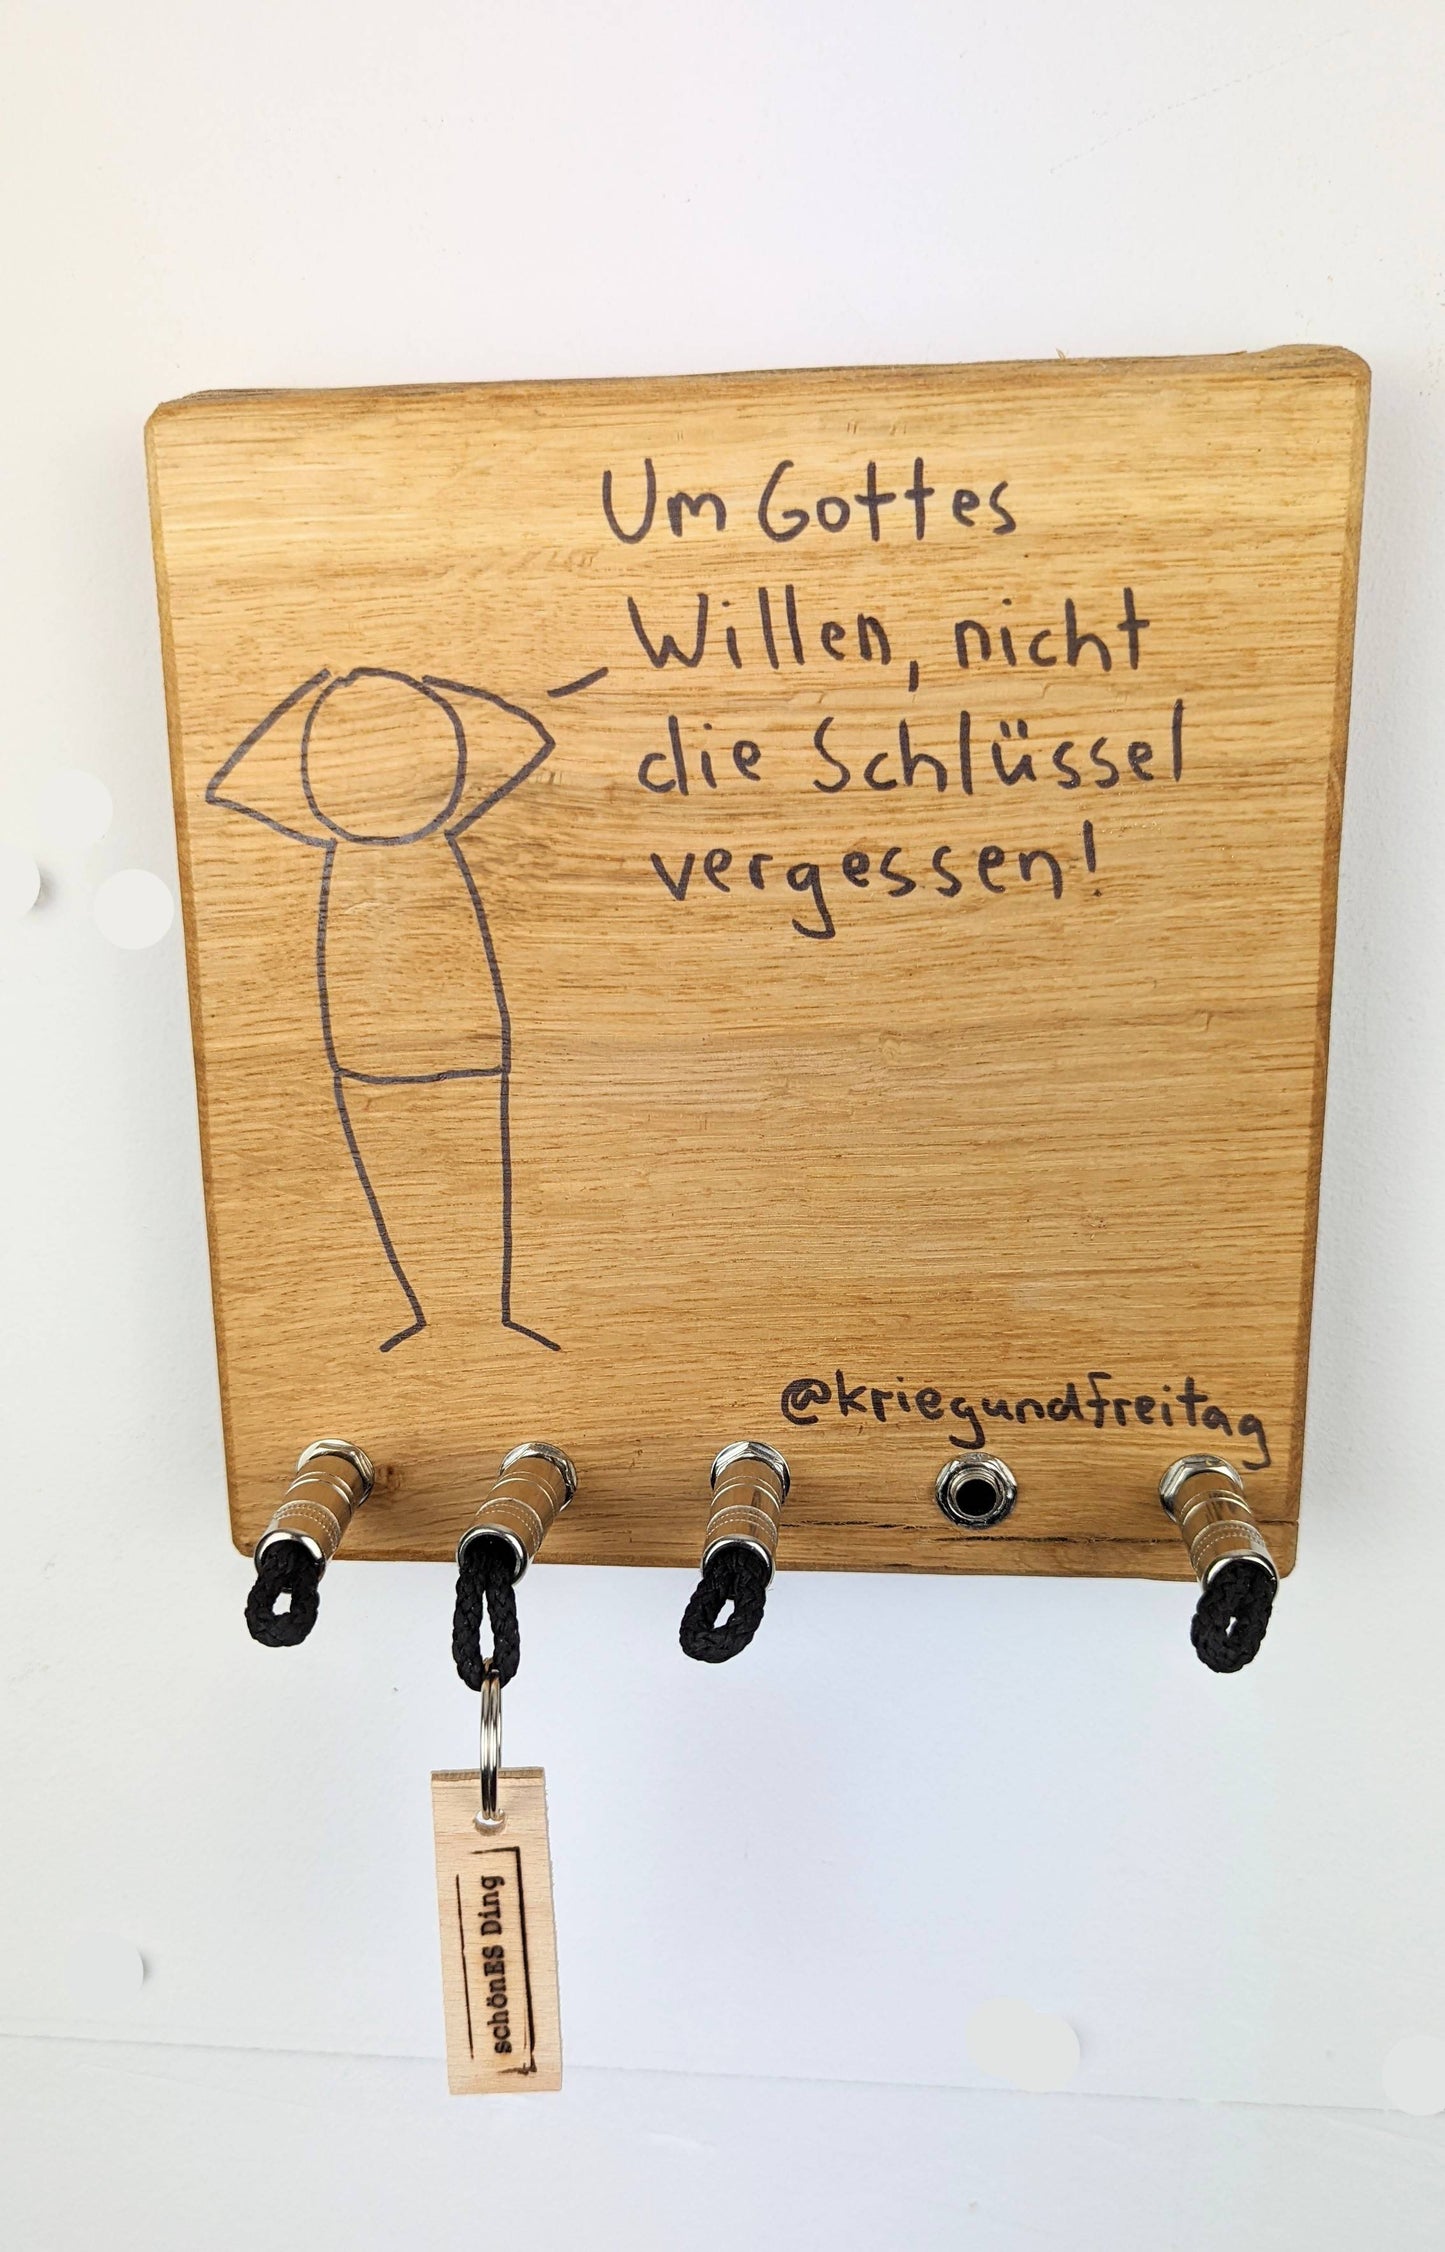 Um Gottes
Willen, nicht
die Schlüssel
vergessen!
@kriegundfreitag
schönES Ding